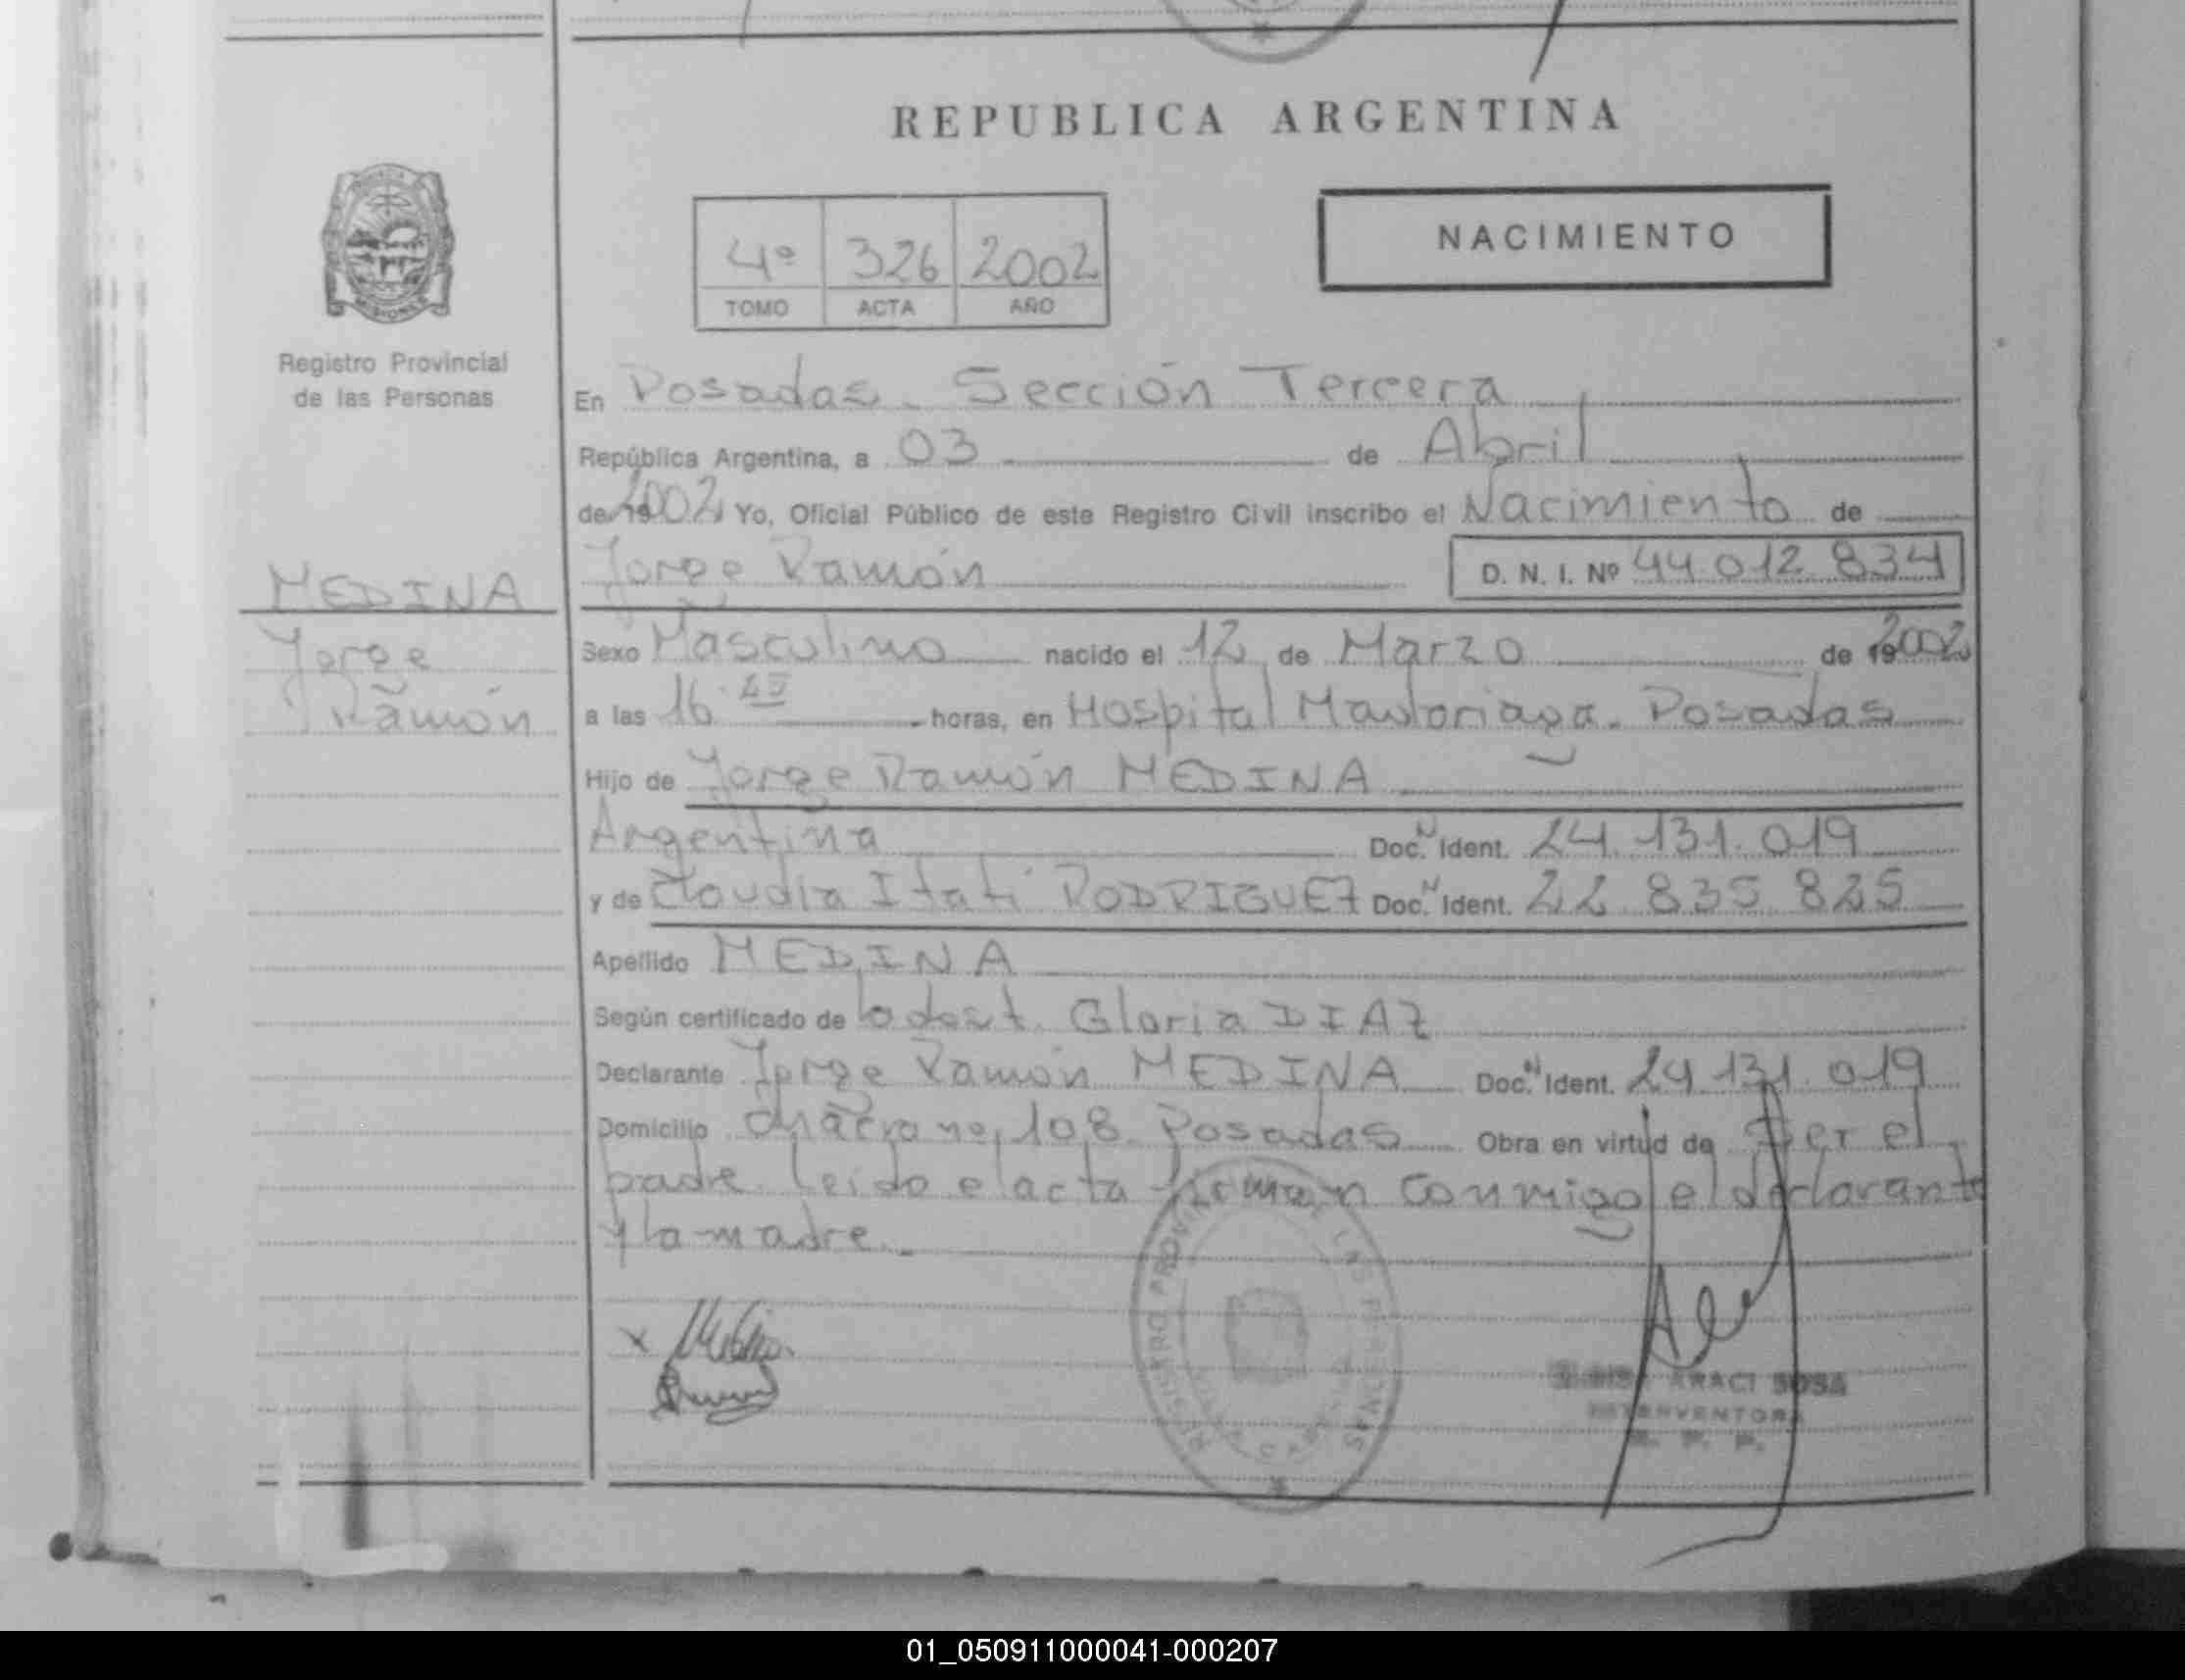 REPUBLICA ARGENTINA
4º 326 2002
TOMO ACTA AÑO
NACIMIENTO
Registro Provincial
de las Personas
MEDINA
Jorge
Ramón
En Posadas. Sección Tercera
República Argentina, a 03 de Abril
de 2002 Yo, Oficial Público de este Registro Civil inscribo el Nacimiento de
Jorge Ramón D. N. I. Nº 44 012 834
Sexo Masculino nacido el 12 de Marzo de 2002
a las 16 horas, en Hospital Madariaga. Posadas
Hijo de Jorge Ramón MEDINA
Argentina Doc. N Ident. 24.131.019
y de Claudia Itatí RODRIGUEZ Doc. N Ident. 22 835 825
Apellido MEDINA
Según certificado de Gloria DIAZ
Declarante Jorge Ramón MEDINA Doc. N Ident. 24 131.019
Domicilio chacra nº 108 Posadas Obra en virtud de ser el
padre. Leído el acta firman conmigo el declarante
y la madre.
REGISTRO PROVINCIAL DE LAS PERSONAS
ARACI SOSA
INTERVENTORA
R. P. P.
01_050911000041-000207